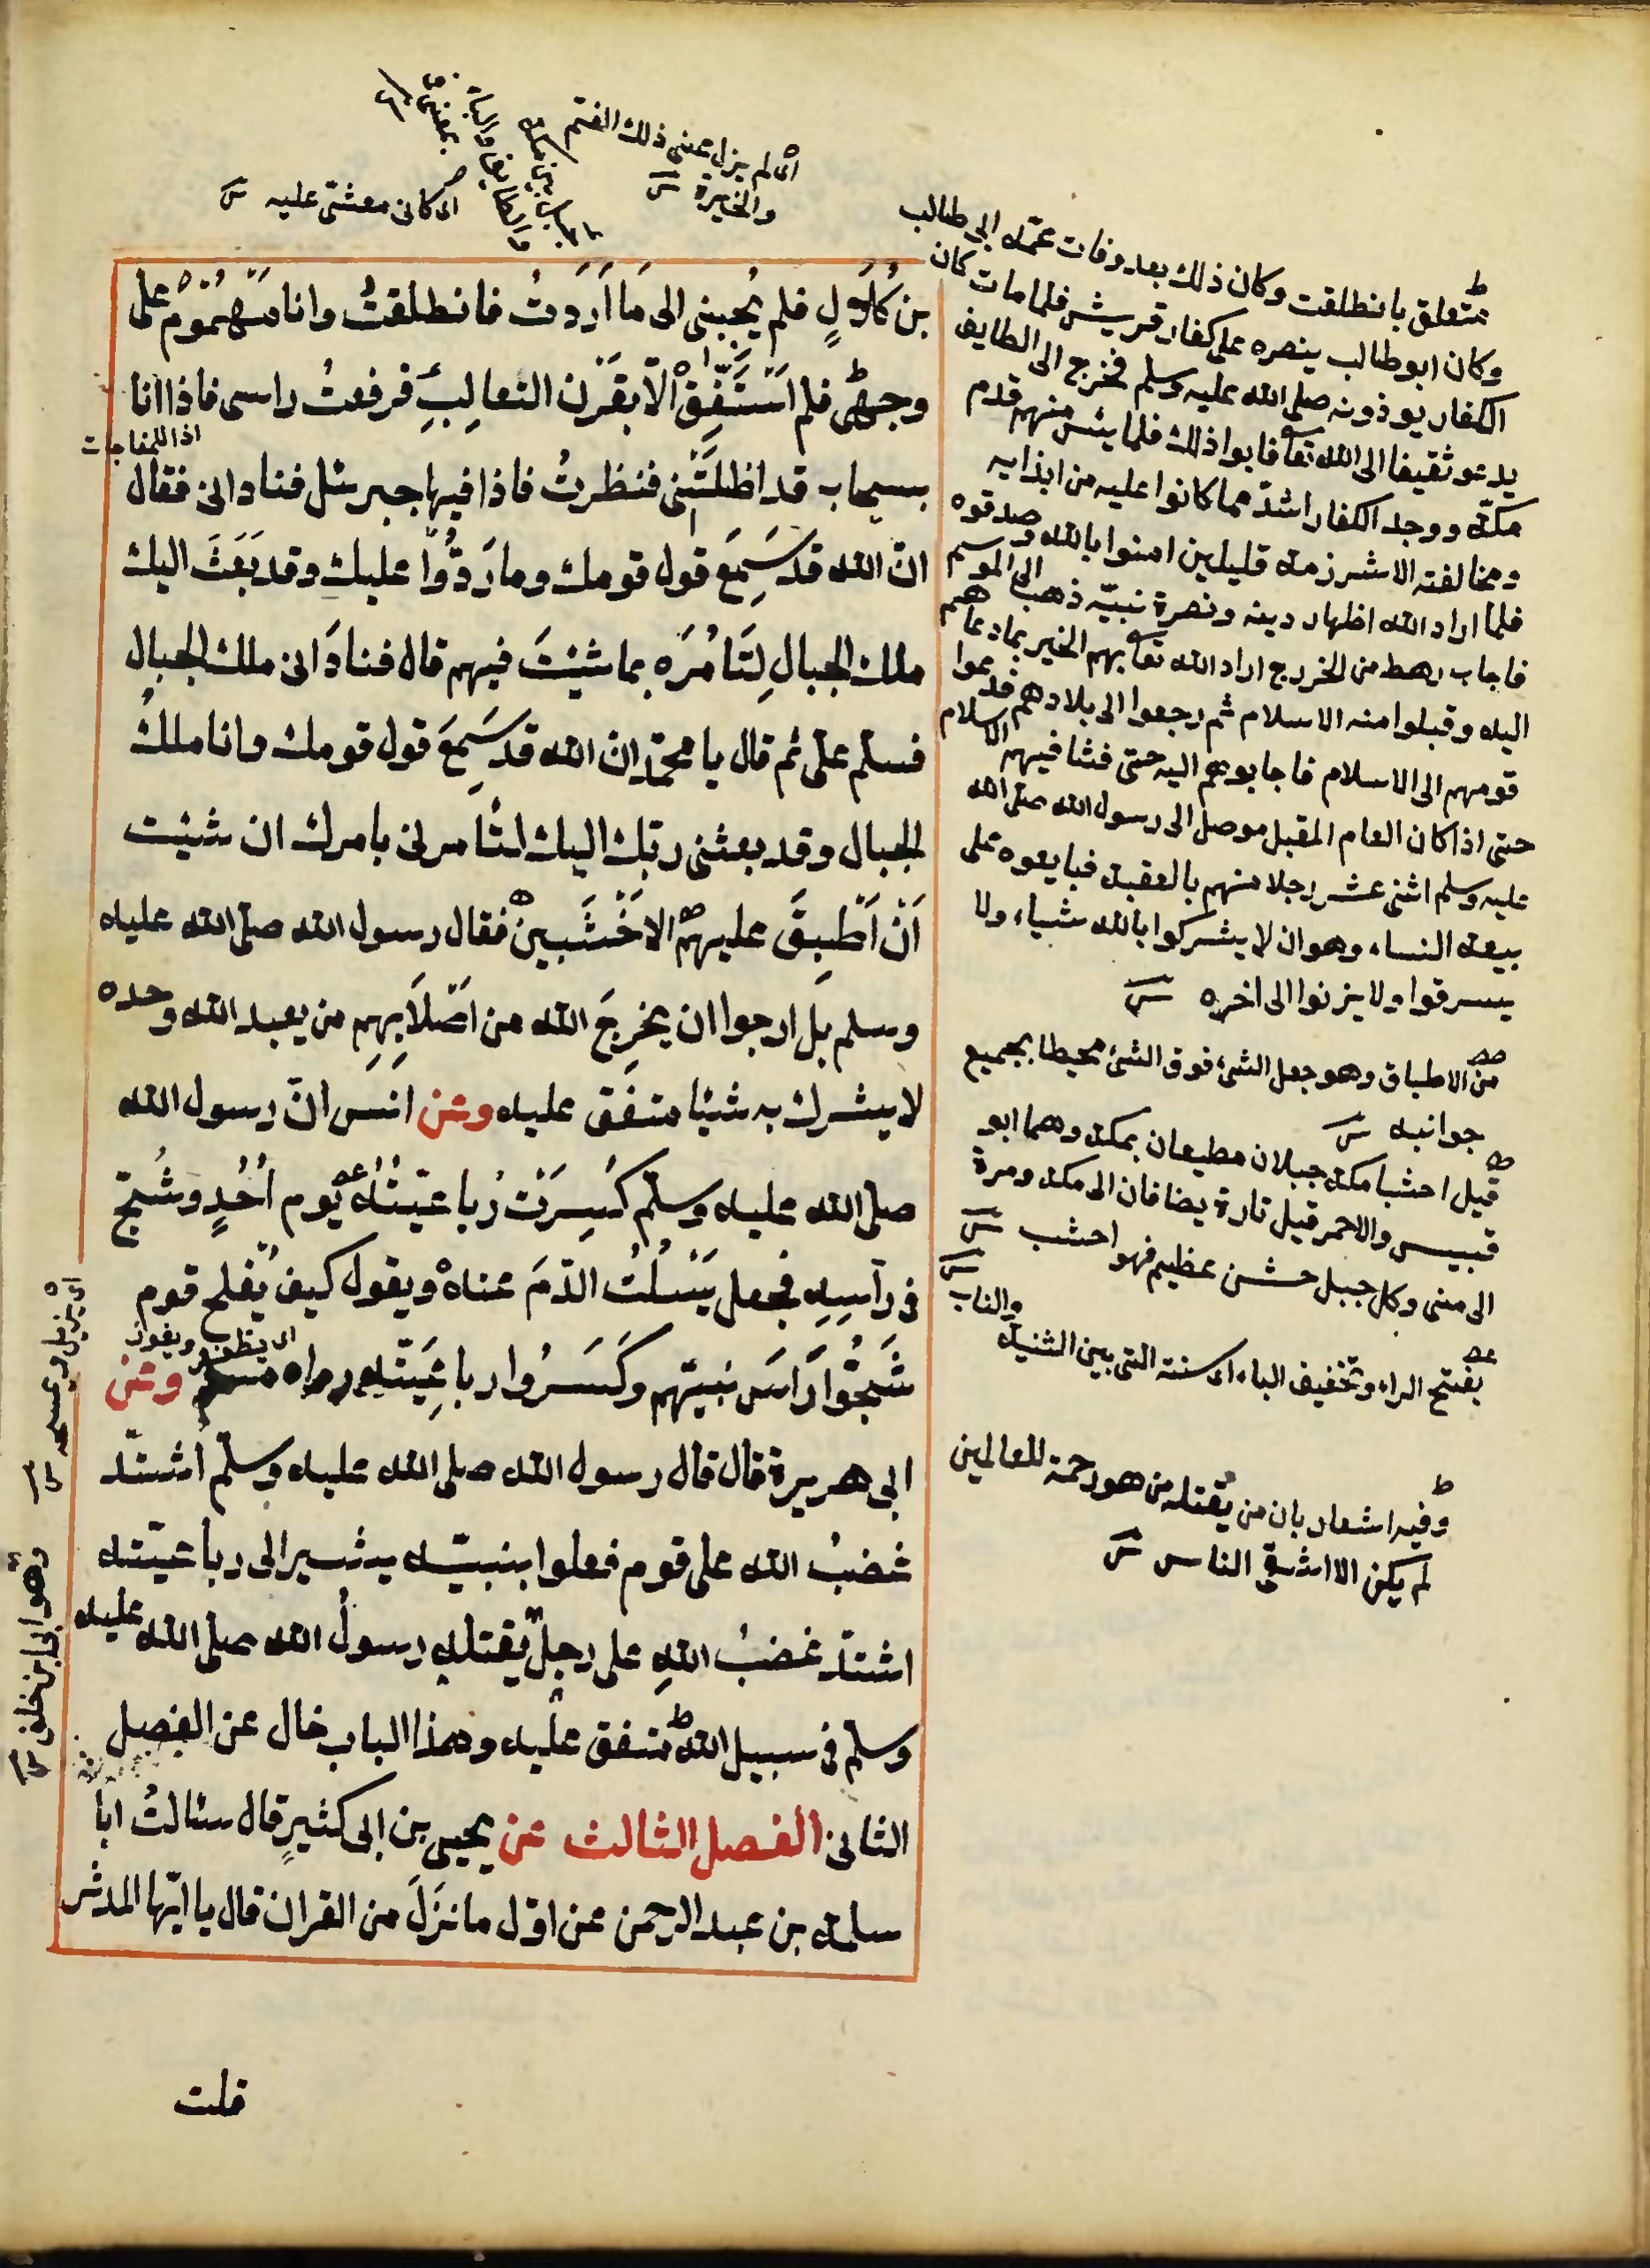 بن كُلَالٍ فلم يُجبنى الى مَا اَرَدتُ فانطلقتُ وانا مَهْمُوْمٌ على
وجهى فلم اَسْتَفِقْ الّا بقَرْن الثعالِبِ فرفعتُ راسى فاذا انا
بسحاب قد اظلَّتْنى فنظرتُ فاذا فيها جبرئل فنادانى فقال
انّ الله قد سَمِعَ قول قومك وما رَدُّوْا عليك وقد بَعَثَ اليك
ملك الجبالِ لِتَامُرَه بما شئتَ فيهم قال فنادَانى ملك الجبال
فسلّم علىّ ثم قال يا محمّد انّ الله قد سَمِعَ قول قومك وانا ملكُ
الجبال وقد بعثنى ربّك اليك لتأمرنى بامرك ان شئت
اَنْ اَطْبِقَ عليهم الاخْشَبين فقال رسول الله صلّى الله عليه
وسلم بل ارجوا ان يخرِجَ الله من اَصْلَابِهِم من يعبد الله وحده
لا يشرك به شيئا متفق عليه وعن انس انّ رسول الله
صلى الله عليه وسلّم كُسِرَتْ رُباعيّتُهُ يوم اُحُدٍ وشُجّ
فى رَأسِهِ فجعل يَسْلُتُ الدّمَ عنه ويقول كيف يُفلح قوم
شَجُّوا رَاسَ نبيّهم وكَسَرُوا رباعِيَتَه رواه مسلم وعن
ابى هريرة قال قال رسول الله صلى الله عليه وسلّم اشتدّ
غضبُ الله على قوم فعلوا بنبيّه يشير الى رباعيّته
اشتدّ غضبُ اللهِ على رجلٍ يقتله رسولُ الله صلى الله عليه
وسلّم فى سبيل الله متفق عليه وهذا الباب خال عن الفصل
الثانى الفصل الثالث عن يحيى بن ابى كثيرٍ قال سئالتُ ابا
سلمه بن عبد الرحمن عن اوّل ما نَزَلَ من القران قال يا ايّها المدثر
قلت
اى لم يزل عنى ذلك الغم
والحيرة
اى كانى مغشى عليه
اذا للمفاجات
اى يظفر ويفوز
متعلق بانطلقت وكان ذلك بعد وفات عمّه ابى طالب
وكان ابو طالب ينصره على كفار قريش فلما مات كان
الكفار يوذونه صلى الله عليه وسلم فخرج الى الطايف
يدعو ثقيفا الى الله تعا فابوا ذلك فلما يئس منهم قدم
مكّه ووجد الكفار اشدّ مما كانوا عليه من ايذايه
ومخالفته الا شرزمة قليلين امنوا بالله وصدقوه
فلما اراد الله اظهار دينه ونصرة نبيّه ذهب الى الموسم
فاجاب رهط من الخزرج اراد الله تعا بهم الخير بما دعاهم
اليه وقبلوا منه الاسلام ثم رجعوا الى بلادهم فدعوا
قومهم الى الاسلام فاجابوهم اليه حتى فشا فيهم الاسلام
حتى اذا كان العام المقبل موصل الى رسول الله صلى الله
عليه وسلم اثنى عشر رجلا منهم بالعقبة فبايعوه على
بيعة النساء وهو ان لا يشركوا بالله شياء ولا
يسرقوا ولا يزنوا الى اخره
من الاطباق وهو جعل الشئ فوق الشئ محيطا بجميع
جوانبه
قيل اخشبا مكة جبلان مطيعان بمكة وهما ابو
قبيس والاحمر قيل تارة يضافان الى مكة ومرة
الى منى وكل جبل خشن عظيم فهو اخشب
بفتح الراء وتخفيف الياء اى سنته التى بين الثنية والناب
وفيه اشعار بان من يقتله من هو رحمة للعالمين
لم يكن الا اشقى الناس
اى يزيل ويمسحه
وهو ابى ابن خلف